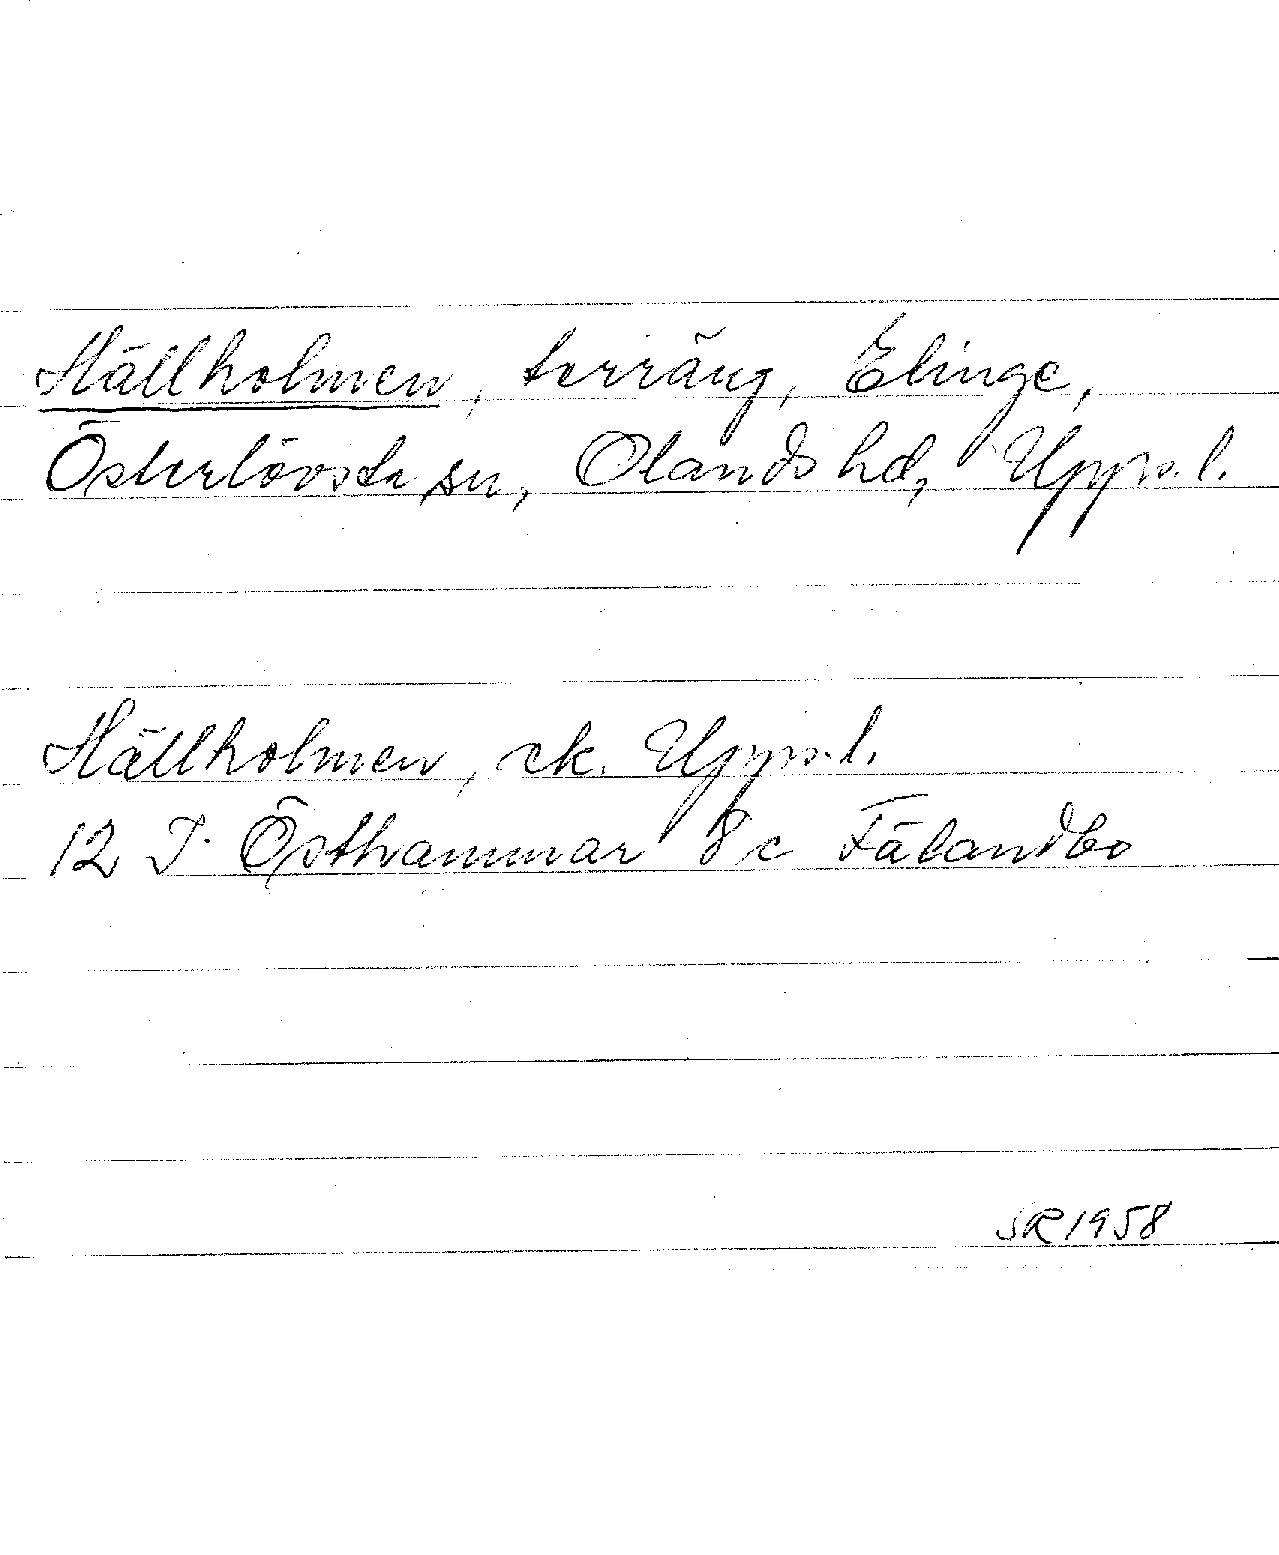 Hällholmen, terräng, Elinge,
Österlövsta sn, Olands hd, Upps. l.
Hällholmen, ek. Upps. l.
12 I. Östhammar 8 c Fälandbo
SR 1958